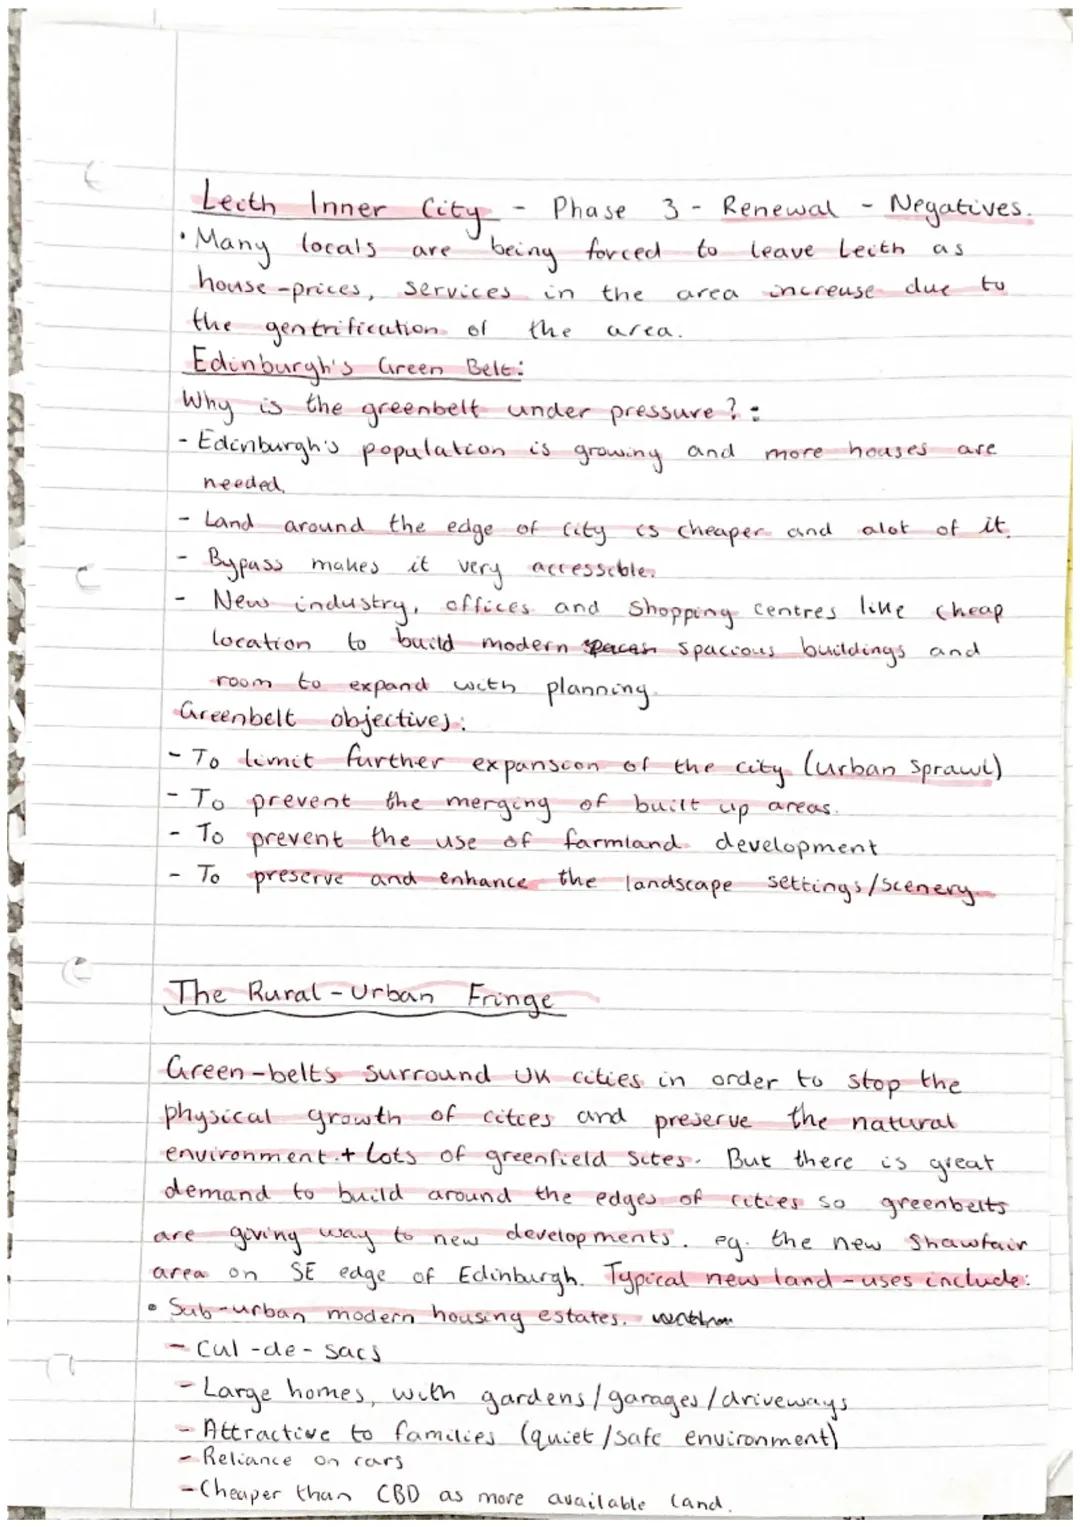 Leith Inner City - Phase 3 - Renewal - Negatives.
• Many locals are being forced to leave Leith as
house-prices, services in the area increase due to
the gentrification of the area.
Edinburgh's Green Belt:
Why is the greenbelt under pressure? :
- Edinburgh's population is growing and more houses are
needed.
- Land around the edge of city is cheaper and alot of it.
- Bypass makes it very accessible.
- New industry, offices and shopping centres like cheap
location to build modern spacious buildings and
room to expand with planning.
Greenbelt objectives:
- To limit further expansion of the city (urban sprawl)
- To prevent the merging of built up areas.
- To prevent the use of farmland development
- To preserve and enhance the landscape settings/scenery.
The Rural-Urban Fringe
Green-belts surround UK cities in order to stop the
physical growth of cities and preserve the natural
environment.+ Lots of greenfield sites. But there is great
demand to build around the edges of cities so greenbelts
are giving way to new developments. eg. the new Shawfair
area on SE edge of Edinburgh. Typical new land-uses include:
• Sub-urban modern housing estates.
- Cul-de-sacs
- Large homes, with gardens/garages/driveways
- Attractive to families (quiet/safe environment)
- Reliance on cars
- Cheaper than CBD as more available land.